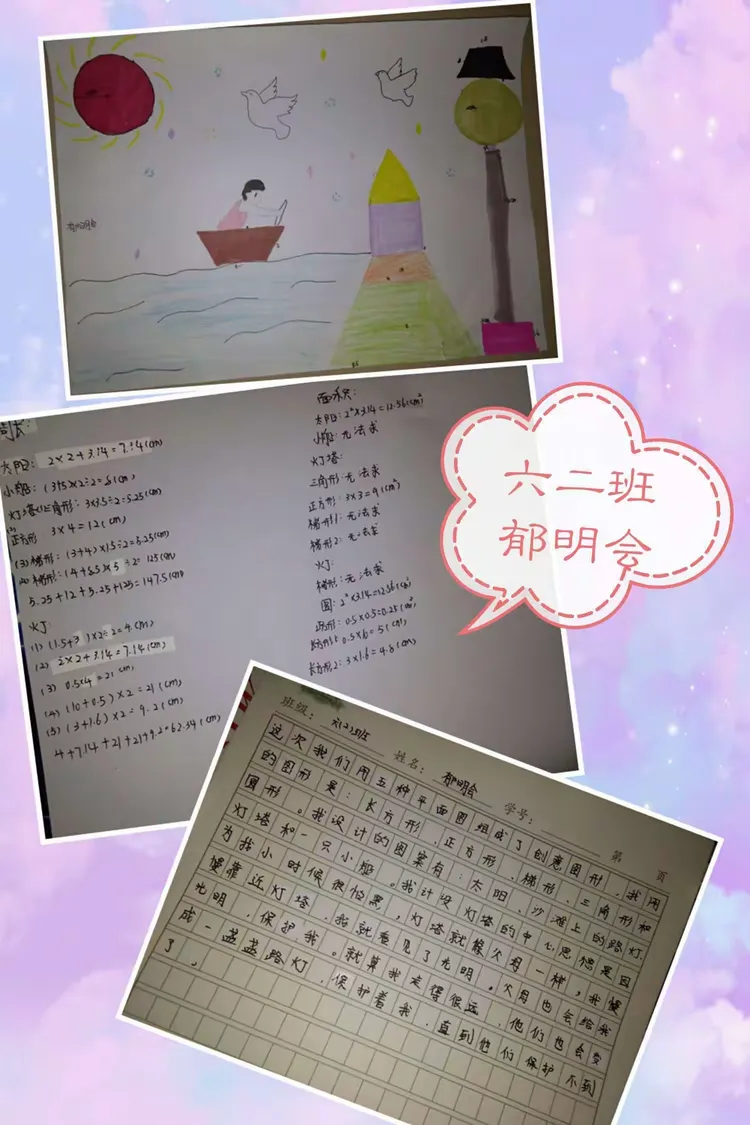 郁明会
周长:
太阳: 2×2+3.14=7.14(cm)
小船: (3+5)×2÷2=8(cm)
灯塔(1)三角形: 3×3.5÷2=5.25(cm)
正方形 3×4=12(cm)
(3)梯形: (3+4)×1.5÷2=5.25(cm)
5.25+12+5.25+125=147.5(cm)
火丁
(1) (1.5+3)×2÷2=4.(cm)
(2) 2×2+3.14=7.14(cm)
(3) 0.5×4=21(cm)
(4) (10+0.5)×2=21(cm)
(5) (3+1.6)×2=9.2(cm)
面积:
太阳: 2²×3.14=12.56(cm²)
小船: 无法求
灯塔:
三角形: 无法求
正方形: 3×3=9(cm²)
梯形1: 无法求
梯形2: 无法求
火丁:
梯形: 无法求
圆: 2²×3.14=12.56(cm²)
正方形: 0.5×0.5=0.25(cm²)
长方形2: 3×1.6=4.8(cm²)
六二班
郁明会
班级: 六(2)班 姓名: 郁明会 学号: 第 页
这次我们用五种平面图组成了创意图形,我用
的图形是:长方形、正方形、梯形、三角形和
圆形。我设计的图案有:太阳、沙滩上的路灯.
灯塔和一只小船。我计没灯塔的中心思想是因
为我小时候很怕黑,灯塔就像父母一样,我慢
慢靠近灯塔,我就看见了光明。父母也会给我
光明,保护我。就算我走得很远,他们也会变
成一盏盏路灯,保护着我,直到他们保护不到
了。